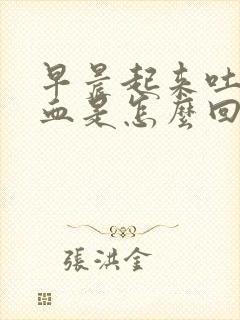 早晨起来吐
血是怎麼回
張洪金